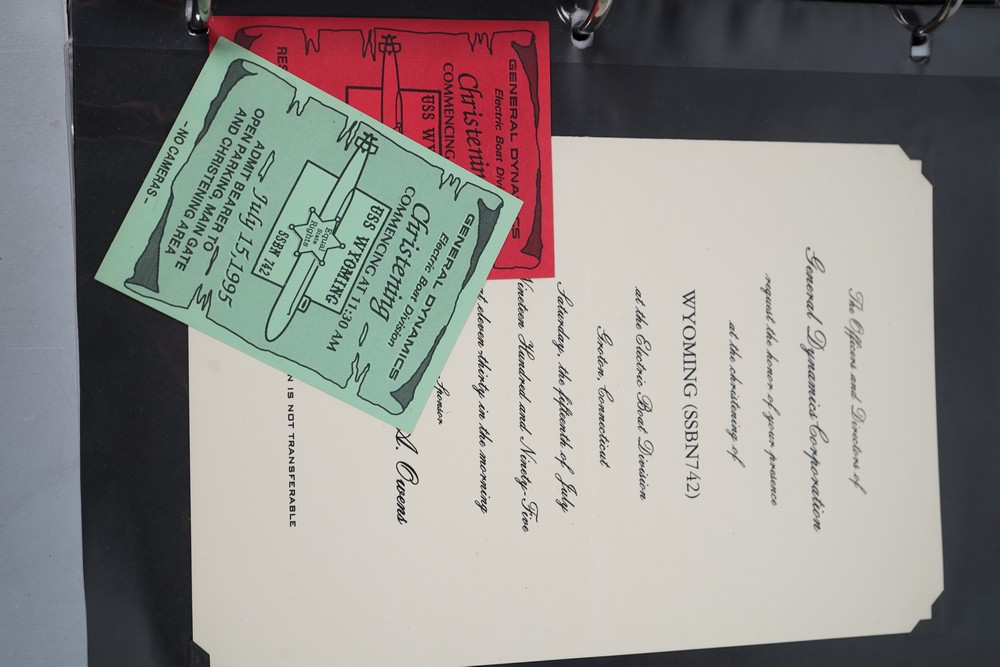 The Officers and Directors of
General Dynamics Corporation
request the honor of your presence
at the christening of
WYOMING (SSBN742)
at the Electric Boat Division
Groton, Connecticut
Saturday, the fifteenth of July
Nineteen Hundred and Ninety-Five
at eleven-thirty in the morning
Sponsor
A. Owens
IS NOT TRANSFERABLE
GENERAL DYNAMICS
Electric Boat Division
Christening
COMMENCING AT 11:30 AM
USS WYOMING
Equal
State
Rights
SSBN 742
July 15, 1995
ADMIT BEARER TO
OPEN PARKING, MAIN GATE
AND CHRISTENING AREA
- NO CAMERAS -
GENERAL DYNAMICS
Electric Boat
Christening
COMMENCING
USS